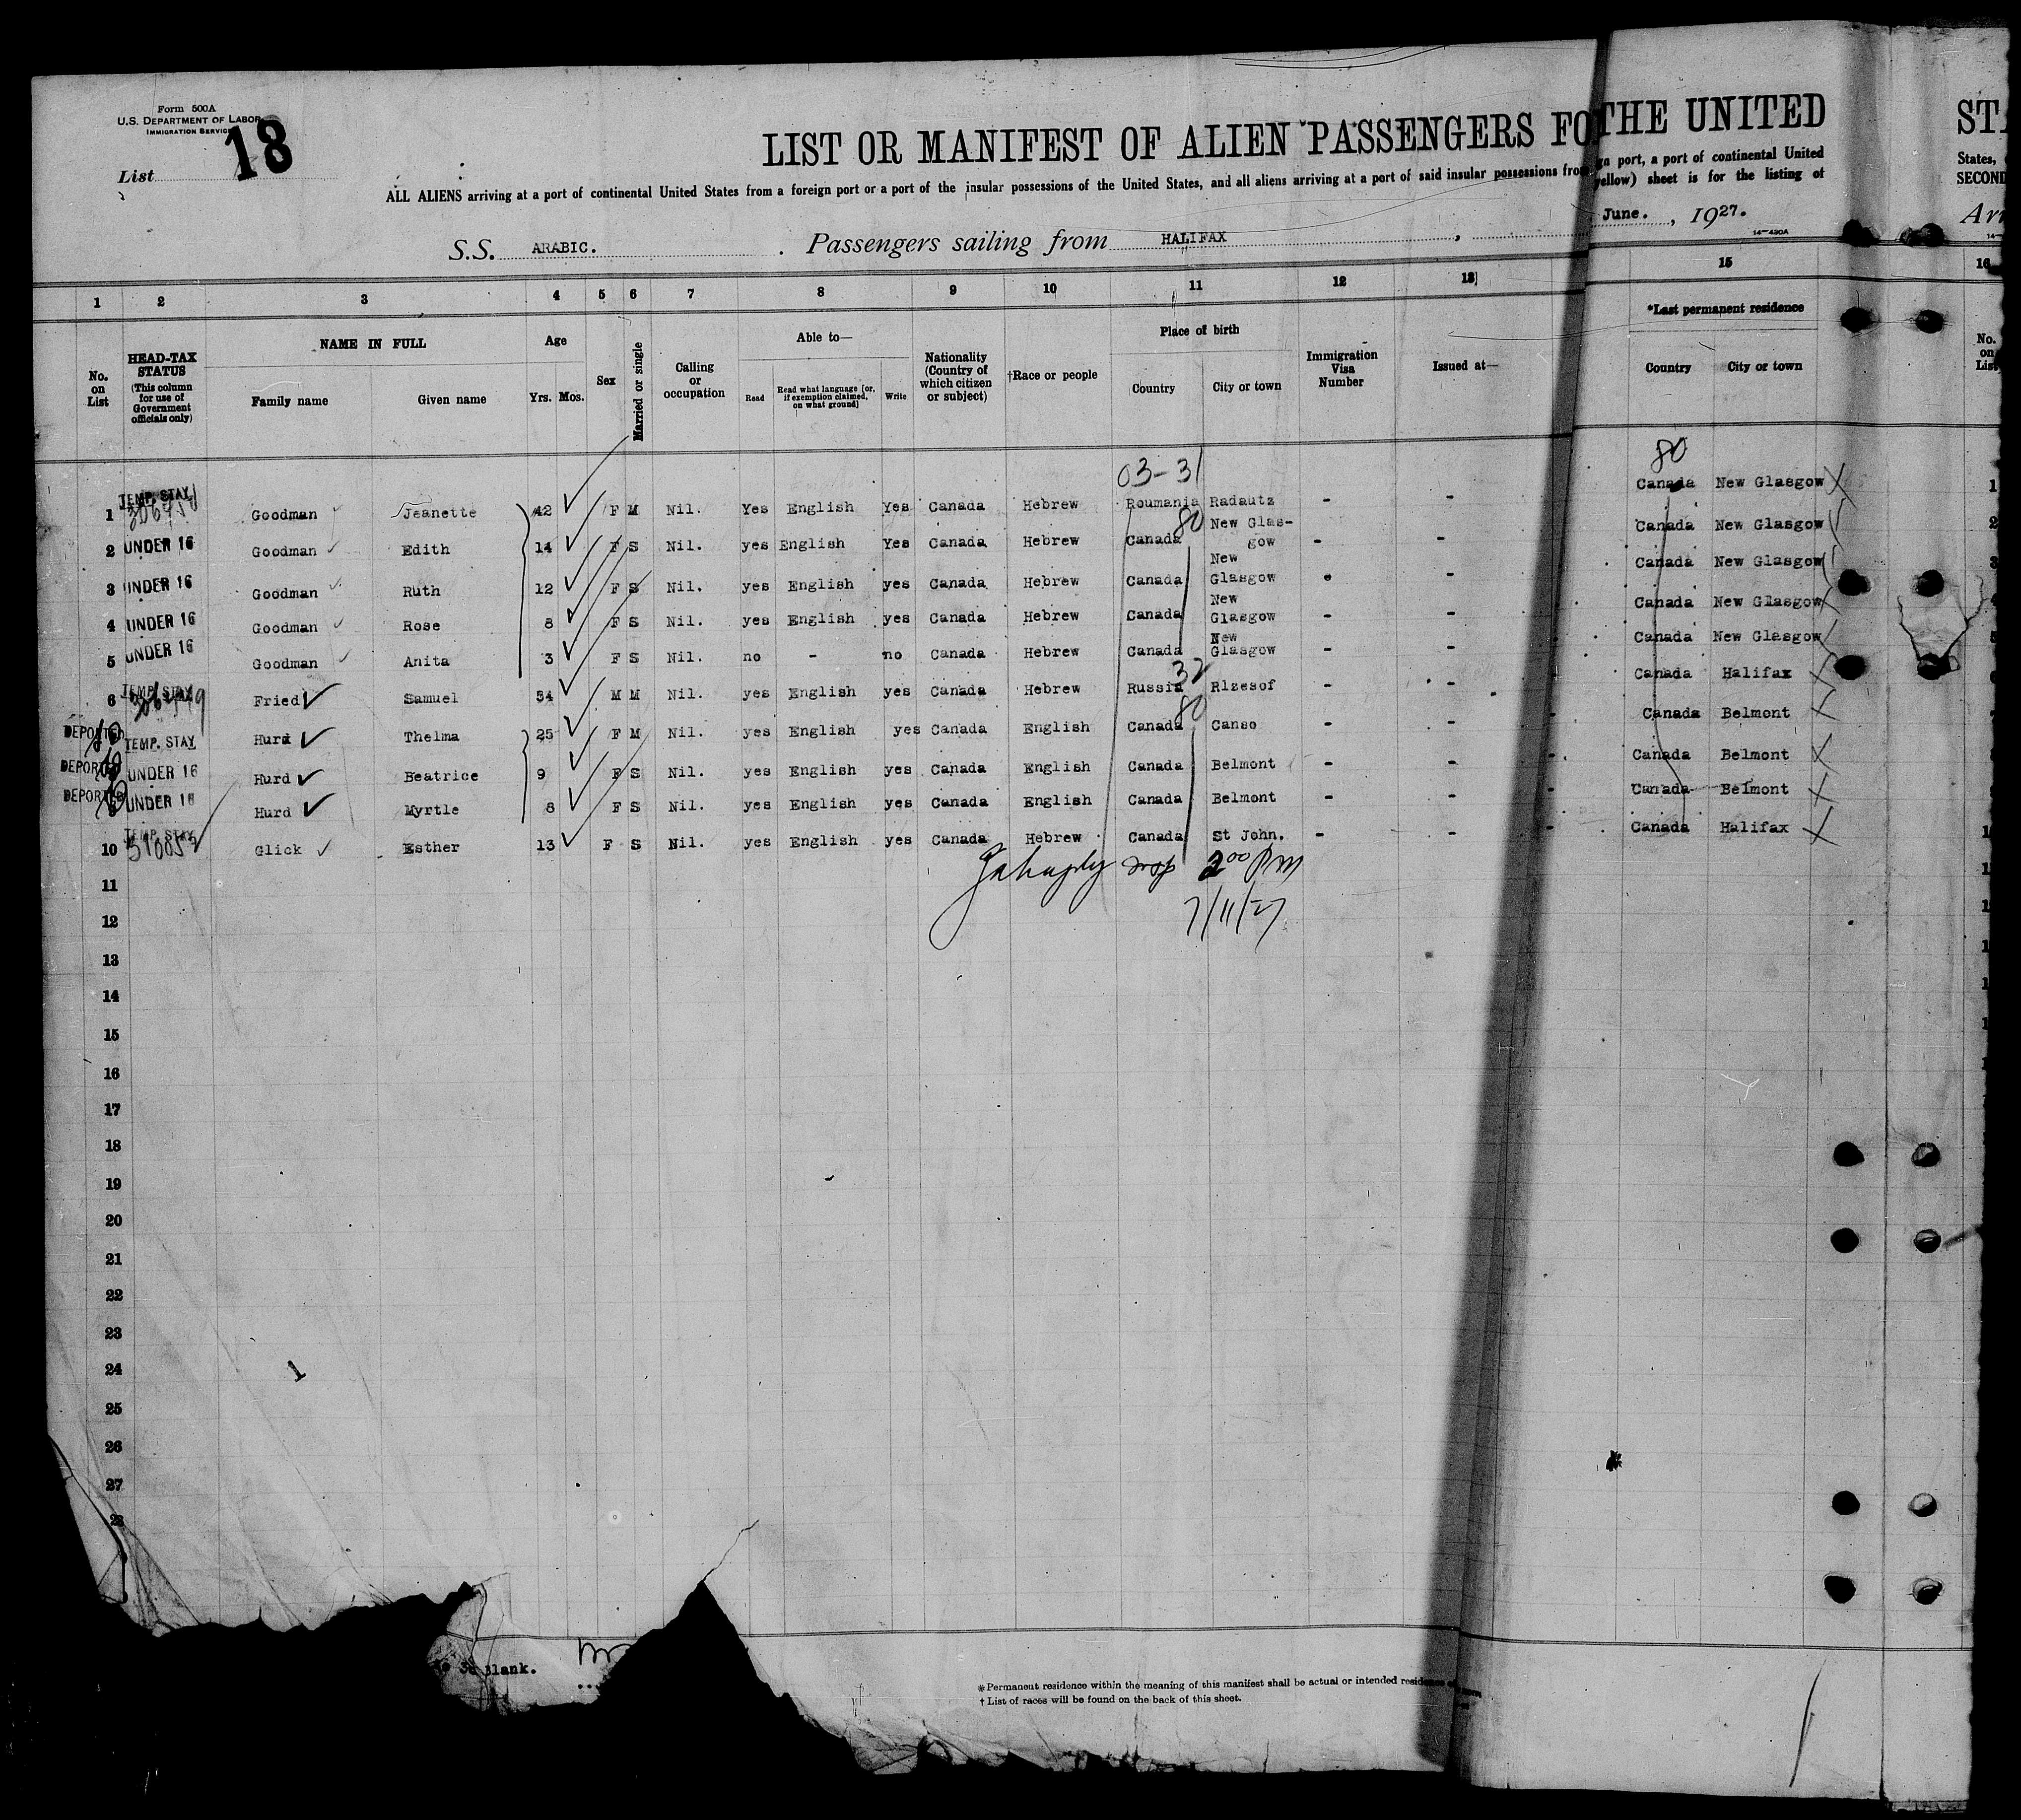 Form 500A
U.S. DEPARTMENT OF LABOR
IMMIGRATION SERVICE
List 18
LIST OR MANIFEST OF ALIEN PASSENGERS FO THE UNITED STA
ALL ALIENS arriving at a port of continental United States from a foreign port or a port of the insular possessions of the United States, and all aliens arriving at a port of said insular possessions from gn port, a port of continental United States,
yellow) sheet is for the listing of SECOND
S.S. ARABIC. Passengers sailing from HALIFAX, June., 1927. Arr
14—430A
1 2 3 4 5 6 7 8 9 10 11 12 13 15 16
No. on List
HEAD-TAX STATUS (This column for use of Government officials only)
NAME IN FULL Family name Given name
Age Yrs. Mos.
Sex
Married or single
Calling or occupation
Able to— Read Read what language [or, if exemption claimed, on what ground] Write
Nationality (Country of which citizen or subject)
†Race or people
Place of birth Country City or town
Immigration Visa Number
Issued at—
*Last permanent residence Country City or town
No. on List
03-31 80
1 TEMP. STAY Goodman Jeanette 42 F M Nil. Yes English Yes Canada Hebrew Roumania Radautz - - Canada New Glasgow 1
80
2 UNDER 16 Goodman Edith 14 F S Nil. yes English Yes Canada Hebrew Canada New Glas-gow - - Canada New Glasgow 2
3 UNDER 16 Goodman Ruth 12 F S Nil. yes English yes Canada Hebrew Canada New Glasgow - - Canada New Glasgow 3
4 UNDER 16 Goodman Rose 8 F S Nil. yes English yes Canada Hebrew Canada New Glasgow - - Canada New Glasgow 4
5 UNDER 16 Goodman Anita 3 F S Nil. no - no Canada Hebrew Canada New Glasgow - - Canada New Glasgow 5
32
6 TEMP. STAY Fried Samuel 54 M M Nil. yes English yes Canada Hebrew Russia Rlzesof - - Canada Halifax 6
80
DEPORTED TEMP. STAY Hurd Thelma 25 F M Nil. yes English yes Canada English Canada Canso - - Canada Belmont
DEPORTED UNDER 16 Hurd Beatrice 9 F S Nil. yes English yes Canada English Canada Belmont - - Canada Belmont
DEPORTED UNDER 16 Hurd Myrtle 8 F S Nil. yes English yes Canada English Canada Belmont - - Canada Belmont
10 TEMP. STAY Glick Esther 13 F S Nil. yes English yes Canada Hebrew Canada St John. - - Canada Halifax
2 00 PM
11
7/11/27
12
13
14
15
16
17
18
19
20
21
22
23
24
25
26
27
28
Blank.
*Permanent residence within the meaning of this manifest shall be actual or intended residence
†List of races will be found on the back of this sheet.